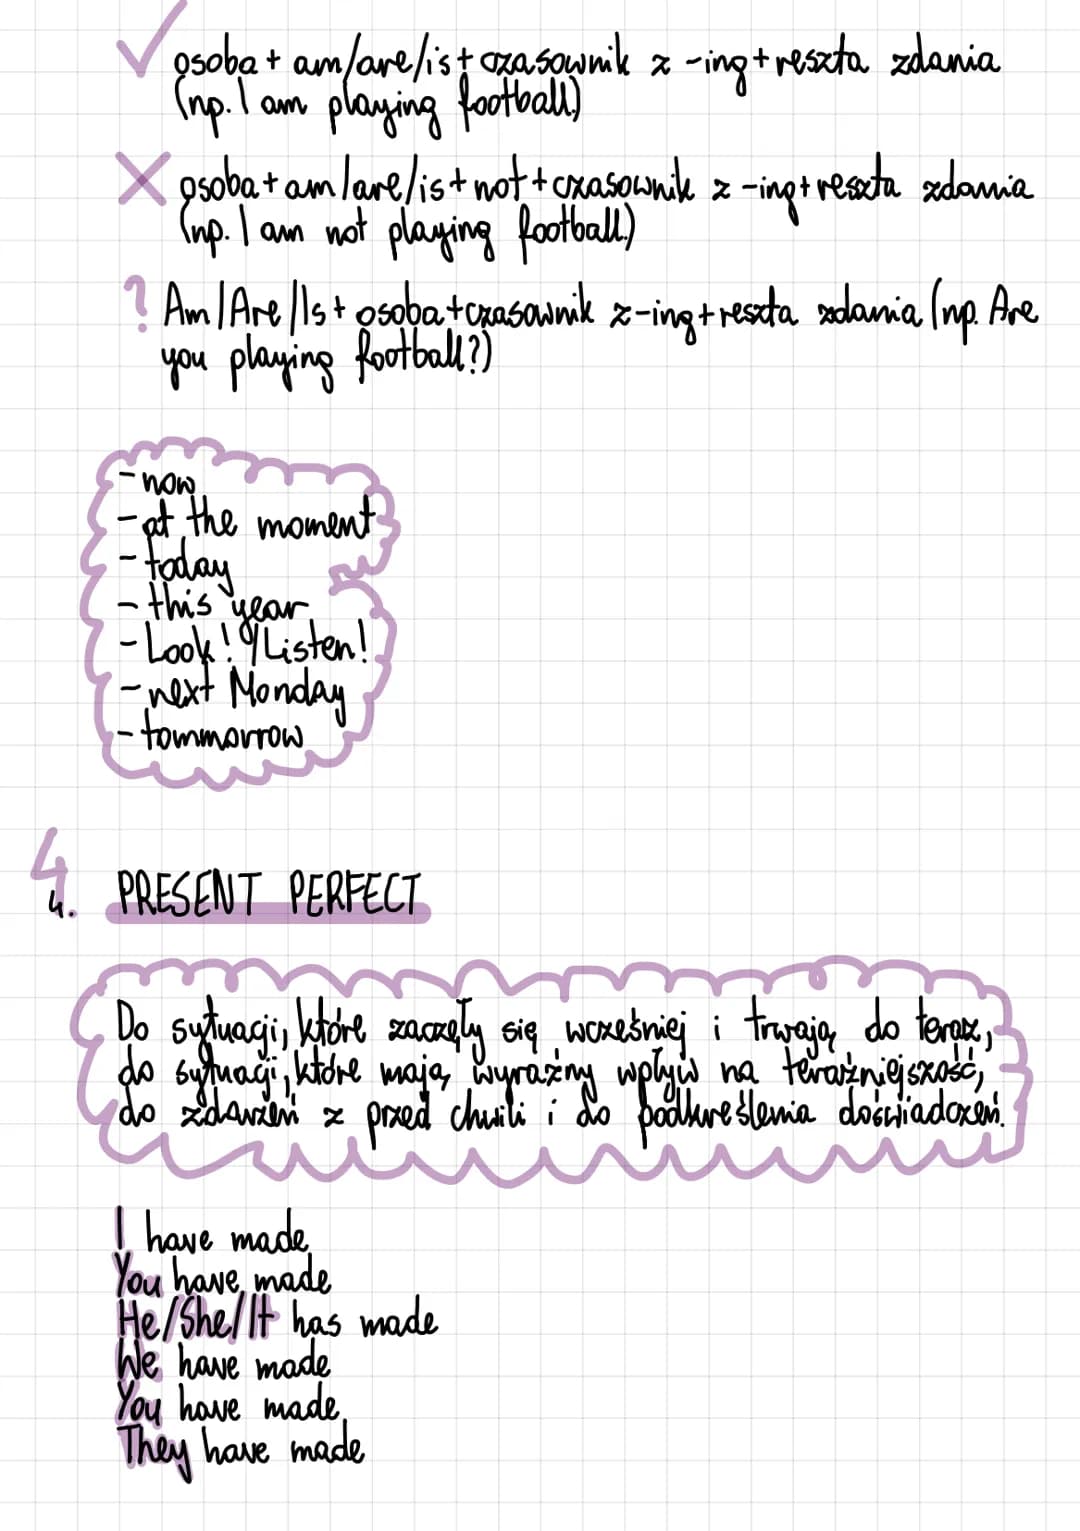 ✓ osoba + am/are/is + czasownik z -ing + reszta zdania
(np. I am playing football)
X osoba + am/are/is + not + czasownik z -ing + reszta zdania
(np. I am not playing football.)
? Am/Are/Is + osoba + czasownik z -ing + reszta zdania (np. Are
you playing football?)
- now
- at the moment
- today
- this year
- Look!/Listen!
- next Monday
- tommorrow
4. PRESENT PERFECT
Do sytuacji, które zaczęły się wcześniej i trwają do teraz,
do sytuacji, które mają wyraźny wpływ na teraźniejszość,
do zdarzeń z przed chwili i do podkreślenia doświadczeń.
I have made
You have made
He/She/It has made
We have made
You have made
They have made